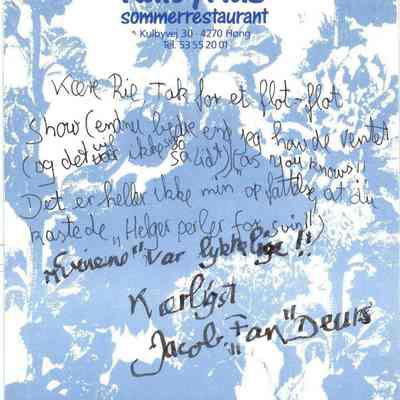 sommerrestaurant
Kulbyvej 30 · 4270 Høng
Tlf. 53 55 20 01
Kære Rie, Tak for et flot-flot
Show (endnu bedre end jeg havde ventet
(og det vil ikke så lidt) (as you knows!!
Det er heller ikke min opfattelse, at du
kastede „Helger perler for svin")
„Svinene" var lykkelige!!
Kærligst
Jacob „Fan" Deurs